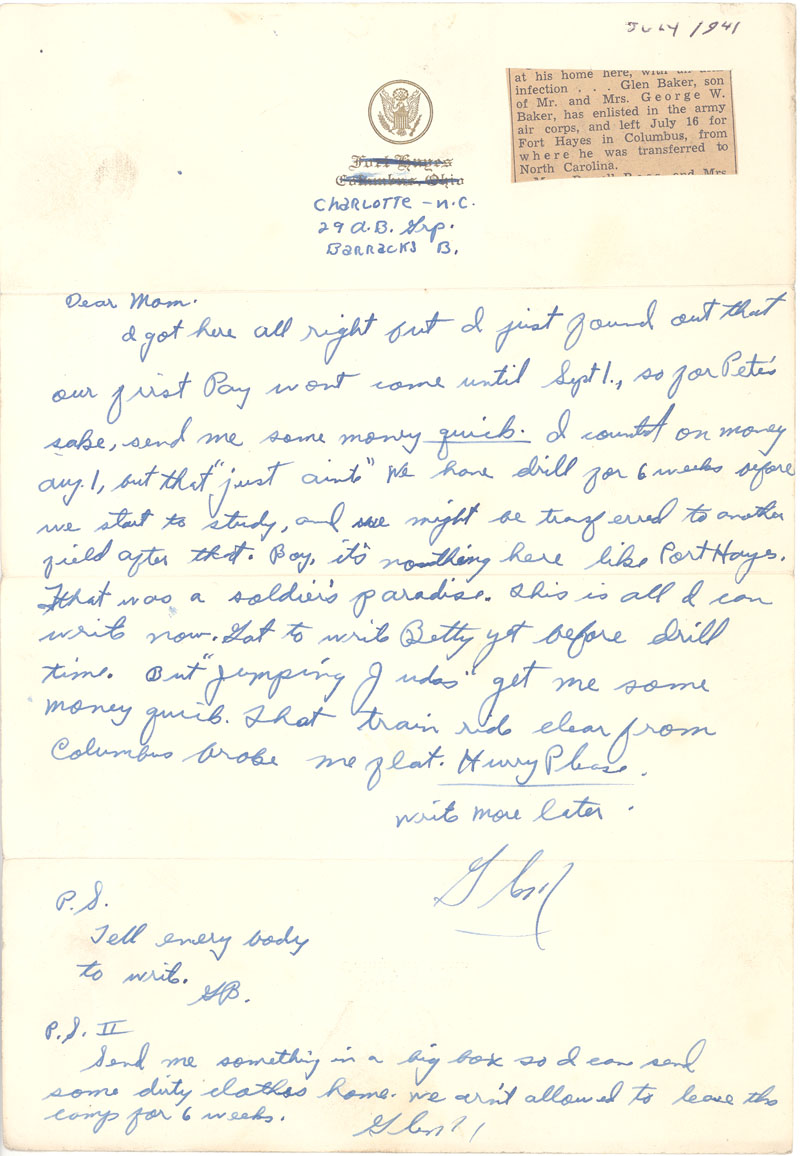 JULY 1941
at his home here, with an
infection . . . Glen Baker, son
of Mr. and Mrs. George W.
Baker, has enlisted in the army
air corps, and left July 16 for
Fort Hayes in Columbus, from
where he was transferred to
North Carolina.
Fort Hayes
Columbus, Ohio
Charlotte - N.C.
29 A.B. Grp.
Barracks B.
Dear Mom.
I got here all right but I just found out that
our first Pay wont come until Sept 1., so for Pete's
sake, send me some money quick. I counted on money
Aug. 1, but that "just aint" We have drill for 6 weeks before
we start to study, and we might be transferred to another
field after that. Boy, it's nothing here like Fort Hayes.
That was a soldier's paradise. This is all I can
write now. Got to write Betty yet before drill
time. But "Jumping Judas" get me some
money quick. That train ride clear from
Columbus broke me flat. Hurry Please.
write more later.
Glen
P.S.
Tell every body
to write.
GB.
P.S. II
Send me something in a big box so I can send
some dirty clothes home. we arn't allowed to leave this
camp for 6 weeks.
Glen